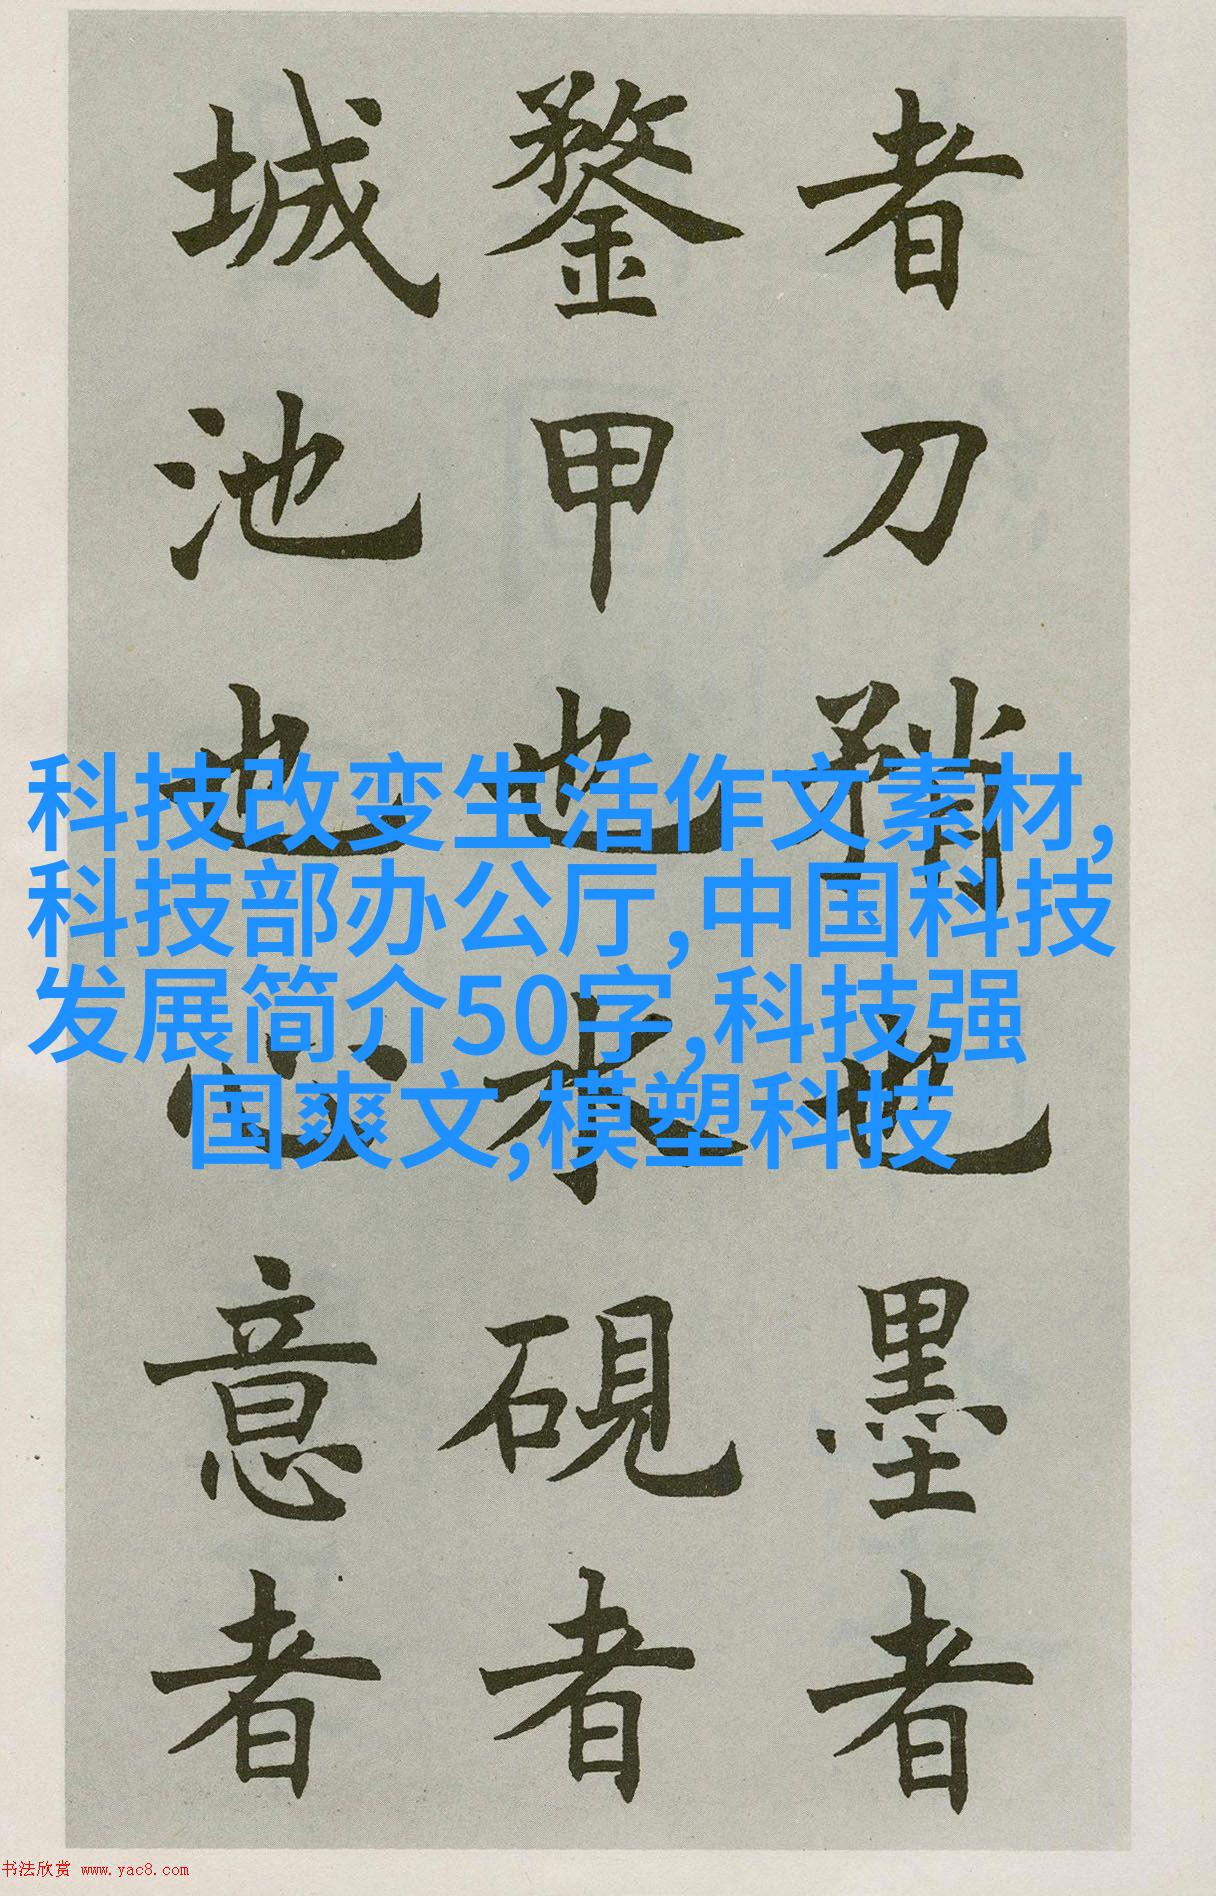 者刀矟也墨者
鍪甲也水硯者
城池也心意者
科技改变生活作文素材,
科技部办公厅,中国科技
发展简介50字,科技强
国爽文,模塑科技
书法欣赏 www.yac8.com